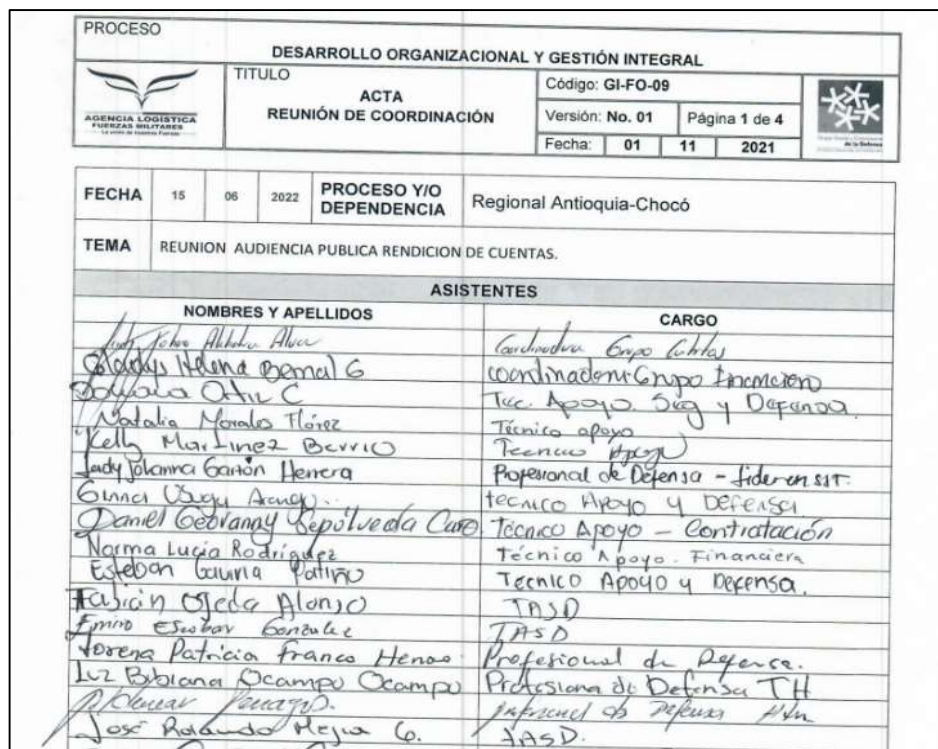 PROCESO
DESARROLLO ORGANIZACIONAL Y GESTIÓN INTEGRAL
AGENCIA LOGÍSTICA
FUERZAS MILITARES
TITULO
ACTA
REUNIÓN DE COORDINACIÓN
Código: GI-FO-09
Versión: No. 01 Página 1 de 4
Fecha: 01 11 2021
de la Defensa
FECHA 15 06 2022 PROCESO Y/O DEPENDENCIA Regional Antioquia-Chocó
TEMA REUNION AUDIENCIA PUBLICA RENDICION DE CUENTAS.
ASISTENTES
NOMBRES Y APELLIDOS CARGO
Coordinadora Grupo
Gladys Helena Bernal G coordinadora Grupo Financiero
Ortiz C Tec. Apoyo. Seg y Defensa.
Natalia Morales Flórez Técnico apoyo
Kelly Martinez Berrio Tecnico Apoyo
Lady Johanna Garzón Herrera Profesional de Defensa - lider en SST.
tecnico Apoyo y Defensa.
Daniel Geovanny Sepúlveda Caro. Técnico Apoyo - Contratación
Norma Lucía Rodríguez Técnico Apoyo. Financiera
Esteban Gaviria Patiño Tecnico Apoyo y Defensa.
Fabián Ojeda Alonso TASD
Emiro Escobar Gonzalez TASD
Lorena Patricia Franco Henao Profesional de Defensa.
Luz Bibiana Ocampo Ocampo Profesiona de Defensa TH
Defensa
José Rolando Mejia G. TASD.